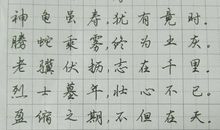 神龟虽寿,犹有竟时.
腾蛇乘雾,终为土灰.
老骥伏枥,志在千里.
烈士暮年,壮心不已.
盈缩之期,不但在天.